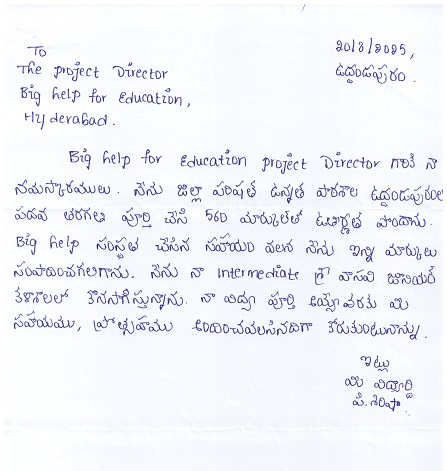 20/8/2025,
ఉద్దండపురం.
To
The project Director
Big help for Education,
Hyderabad.
Big help for Education project Director గారికి నా
నమస్కారములు. నేను జిల్లా పరిషత్ ఉన్నత పాఠశాల ఉద్దండపురంలో
పదవ తరగతి పూర్తి చేసి 560 మార్కులతో ఉత్తీర్ణత పొందాను.
Big help సంస్థ చేసిన సహాయం వలన నేను ఇన్ని మార్కులు
సంపాదించగలిగాను. నేను నా Intermediate శ్రీ వాసవి జూనియర్
కళాశాలలో కొనసాగిస్తున్నాను. నా విద్య పూర్తి అయ్యే వరకు మీ
సహాయము, ప్రోత్సాహము అందించవలసినదిగా కోరుకుంటున్నాను.
ఇట్లు
మీ విద్యార్థి
పి. శిరీష